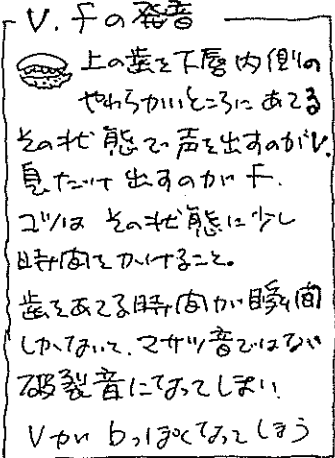 V.fの発音
上の歯を下唇内側の
やわらかいところにあてる
その状態で声を出すのがV.
息だけ出すのがf.
コツはその状態に少し
時間をかけること。
歯をあてる時間が瞬間
しかないと、マサツ音ではない
破裂音になってしまい
Vがbっぽくなってしまう